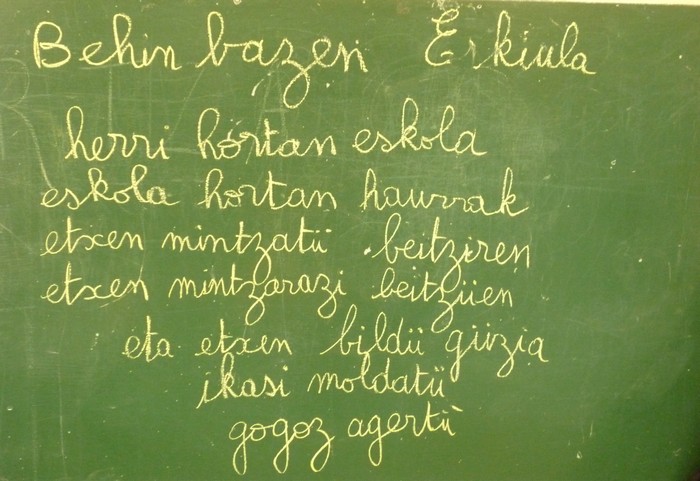 Behin bazen Erkiula
herri hortan eskola
eskola hortan haurrak
etxen mintzatü beitziren
etxen mintzarazi beitzüen
eta etxen bildü güzia
ikasi moldatü
gogoz agertü